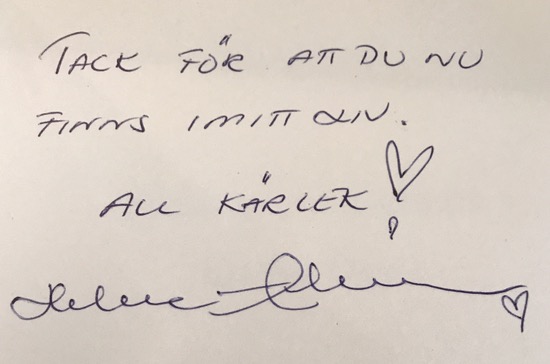 TACK FÖR ATT DU NU
FINNS I MITT LIV.
ALL KÄRLEK!